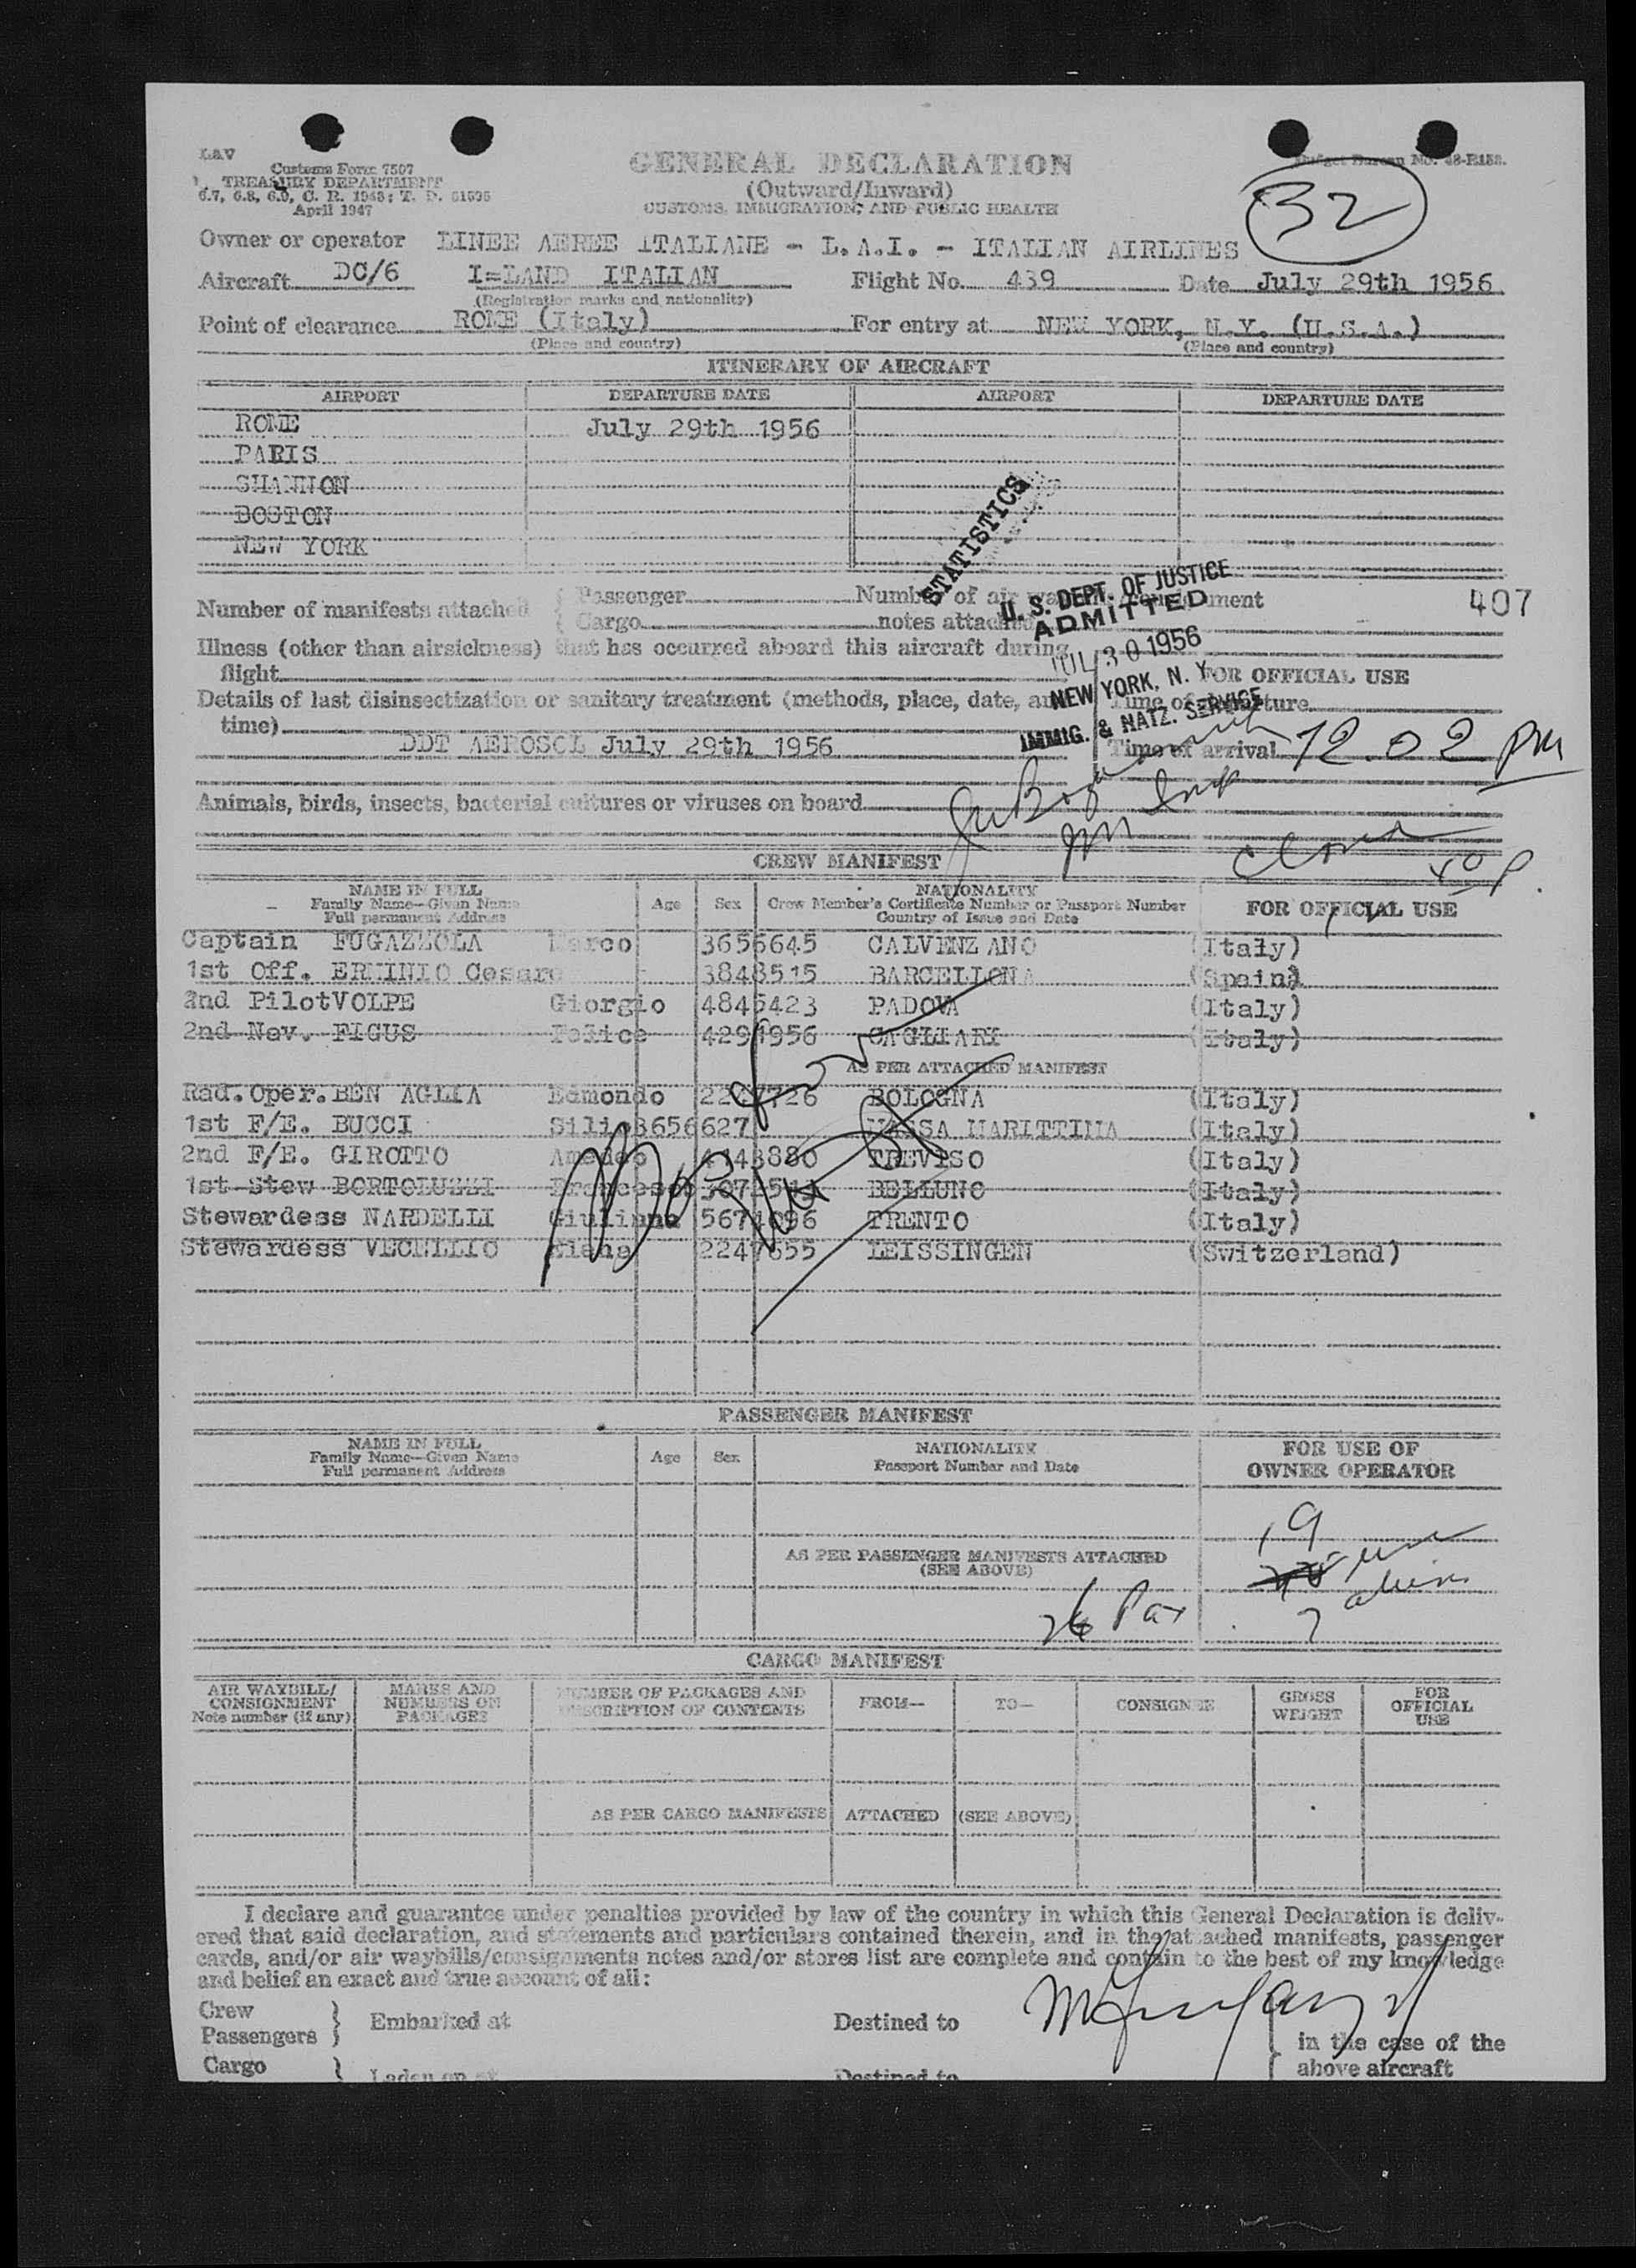 LAV
Customs Form 7507
TREASURY DEPARTMENT
6.7, 6.8, 6.9, C. R. 1943; T. D. 51595
April 1947
GENERAL DECLARATION
(Outward/Inward)
CUSTOMS, IMMIGRATION, AND PUBLIC HEALTH
Budget Bureau No. 48-R188.
32
Owner or operator LINEE AEREE ITALIANE - L.A.I. - ITALIAN AIRLINES
Aircraft DC/6 I=LAND ITALIAN Flight No. 439 Date July 29th 1956
(Registration marks and nationality)
Point of clearance ROME (Italy) For entry at NEW YORK, N.Y. (U.S.A.)
(Place and country) (Place and country)
ITINERARY OF AIRCRAFT
AIRPORT DEPARTURE DATE AIRPORT DEPARTURE DATE
ROME July 29th 1956
PARIS
SHANNON
BOSTON
NEW YORK
STATISTICS
Number of manifests attached { Passenger Number of air
{ Cargo notes attached
407
U. S. DEPT. OF JUSTICE
ADMITTED
JUL 30 1956
NEW YORK, N. Y.
IMMIG. & NATZ. SERVICE
Illness (other than airsickness) that has occurred aboard this aircraft during
flight
FOR OFFICIAL USE
Details of last disinsectization or sanitary treatment (methods, place, date, and
time)
Time of departure
DDT AEROSOL July 29th 1956
Time of arrival 12.02 PM
Animals, birds, insects, bacterial cultures or viruses on board
CREW MANIFEST
NAME IN FULL
Family Name—Given Name
Full permanent Address
Age Sex
NATIONALITY
Crew Member's Certificate Number or Passport Number
Country of Issue and Date
FOR OFFICIAL USE
Captain FUGAZZOLA Marco 3656645 CALVENZANO (Italy)
1st Off. ERMINIO Cesare 3848515 BARCELLONA (Spain)
2nd Pilot VOLPE Giorgio 4845423 PADOVA (Italy)
2nd Nav. FIGUS Felice 4291956 CAGLIARI (Italy)
AS PER ATTACHED MANIFEST
Rad.Oper. BENAGLIA Edmondo BOLOGNA (Italy)
1st F/E. BUCCI 3656627 MASSA MARITTIMA (Italy)
2nd F/E. GIROTTO Amedeo TREVISO (Italy)
1st Stew BORTOLUZZI Francesco BELLUNO (Italy)
Stewardess NARDELLI Giuliana 5671096 TRENTO (Italy)
Stewardess VECELLIO 2247655 LEISSINGEN (Switzerland)
PASSENGER MANIFEST
NAME IN FULL
Family Name—Given Name
Full permanent Address
Age Sex
NATIONALITY
Passport Number and Date
FOR USE OF
OWNER OPERATOR
19
AS PER PASSENGER MANIFESTS ATTACHED
(SEE ABOVE)
26 Pax
7 aliens
CARGO MANIFEST
AIR WAYBILL/
CONSIGNMENT
Note number (if any)
MARKS AND
NUMBERS ON
PACKAGES
NUMBER OF PACKAGES AND
DESCRIPTION OF CONTENTS
FROM— TO— CONSIGNEE
GROSS
WEIGHT
FOR
OFFICIAL
USE
AS PER CARGO MANIFESTS ATTACHED (SEE ABOVE)
I declare and guarantee under penalties provided by law of the country in which this General Declaration is deliv-
ered that said declaration, and statements and particulars contained therein, and in the attached manifests, passenger
cards, and/or air waybills/consignments notes and/or stores list are complete and contain to the best of my knowledge
and belief an exact and true account of all:
Crew
Passengers } Embarked at Destined to
in the case of the
above aircraft
Cargo } Laden on at Destined to